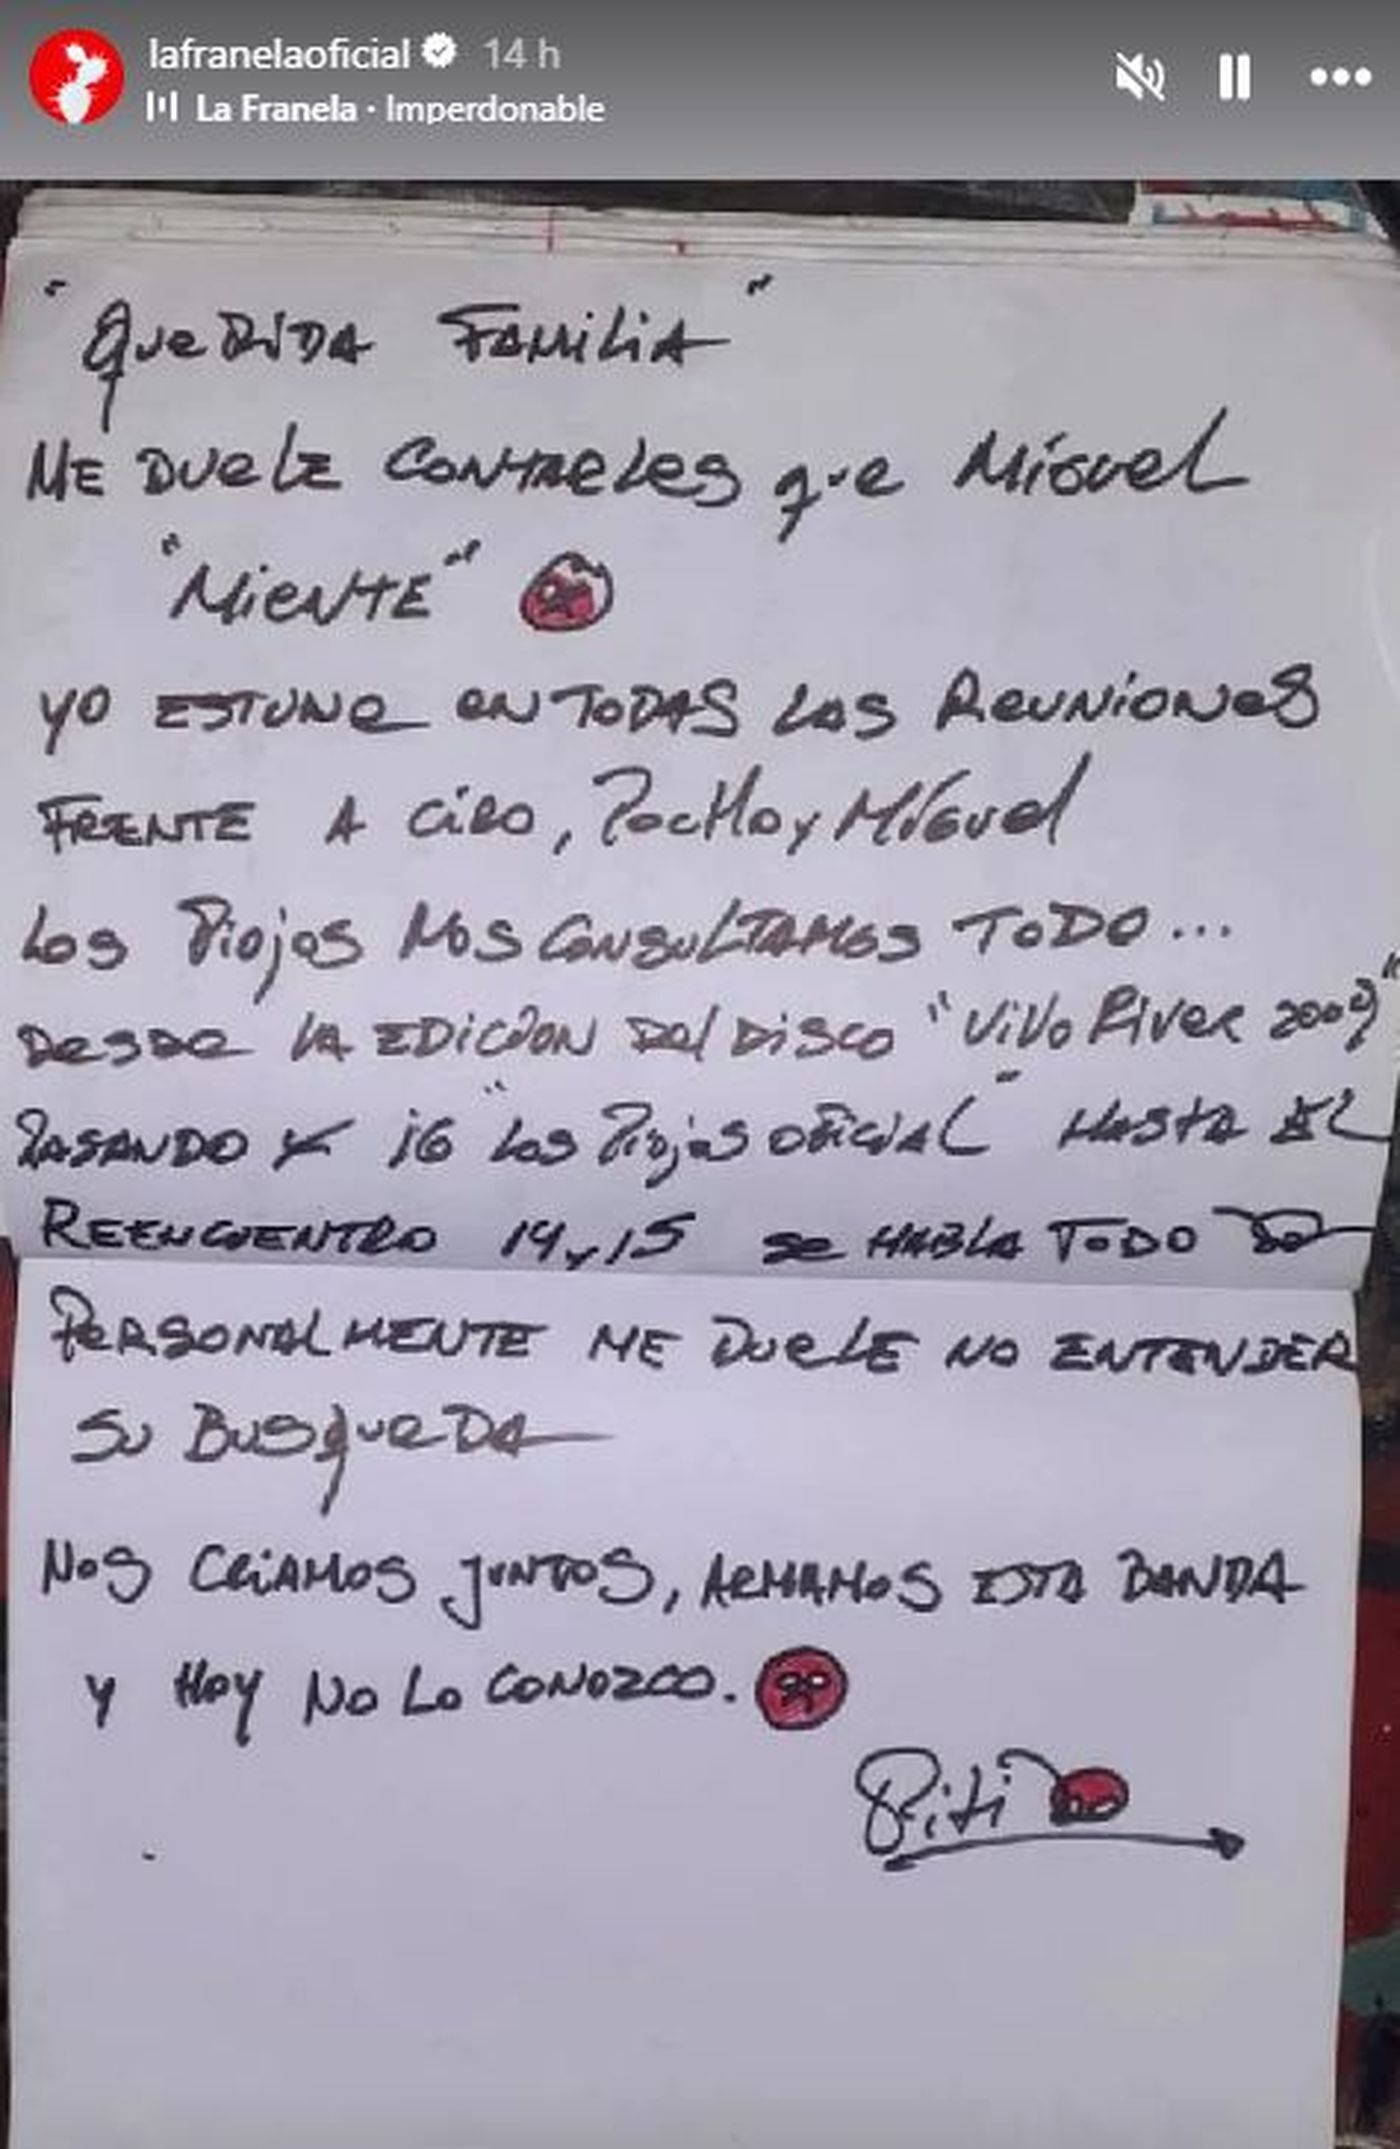 lafranelaoficial 14 h
La Franela · Imperdonable
"Querida Familia"
Me duele contarles que Miguel
"Miente"
Yo estuve en todas las reuniones
frente a Ciro, Pocho y Miguel
Los Piojos nos consultamos todo...
desde la edición del disco "Vivo River 2009"
pasando x iG "Los Piojos oficial" hasta el
Reencuentro 14 y 15 se habla todo
Personalmente me duele no entender
su busqueda
Nos criamos juntos, armamos esta banda
y hoy no lo conozco.
Piti